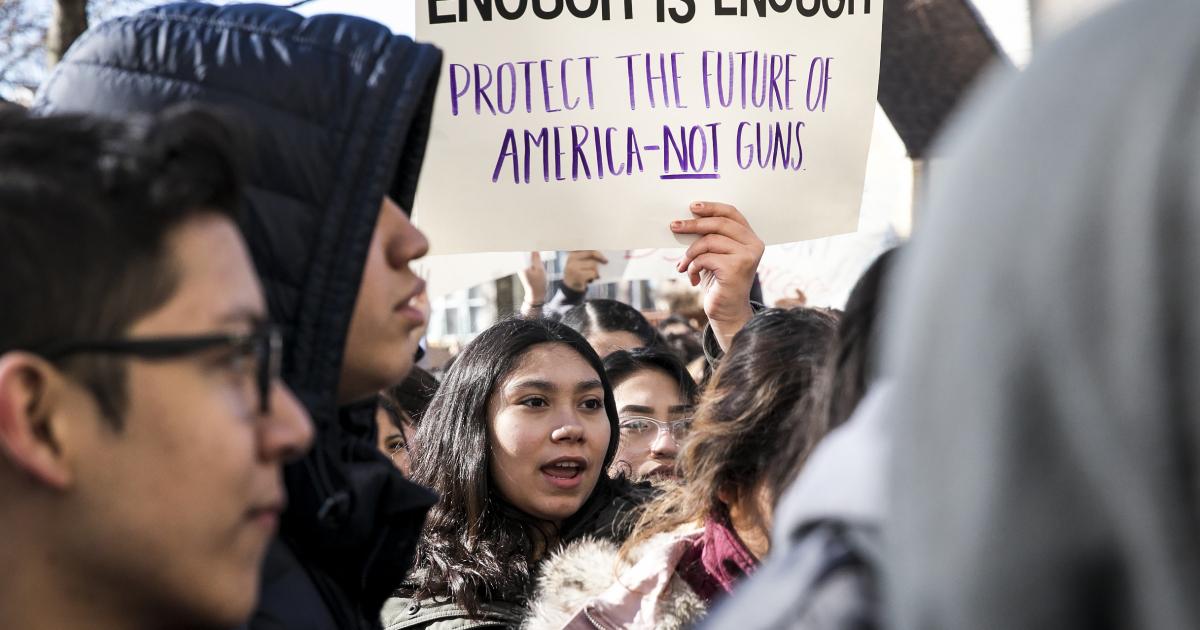 ENOUGH IS ENOUGH
PROTECT THE FUTURE OF
AMERICA-NOT GUNS.